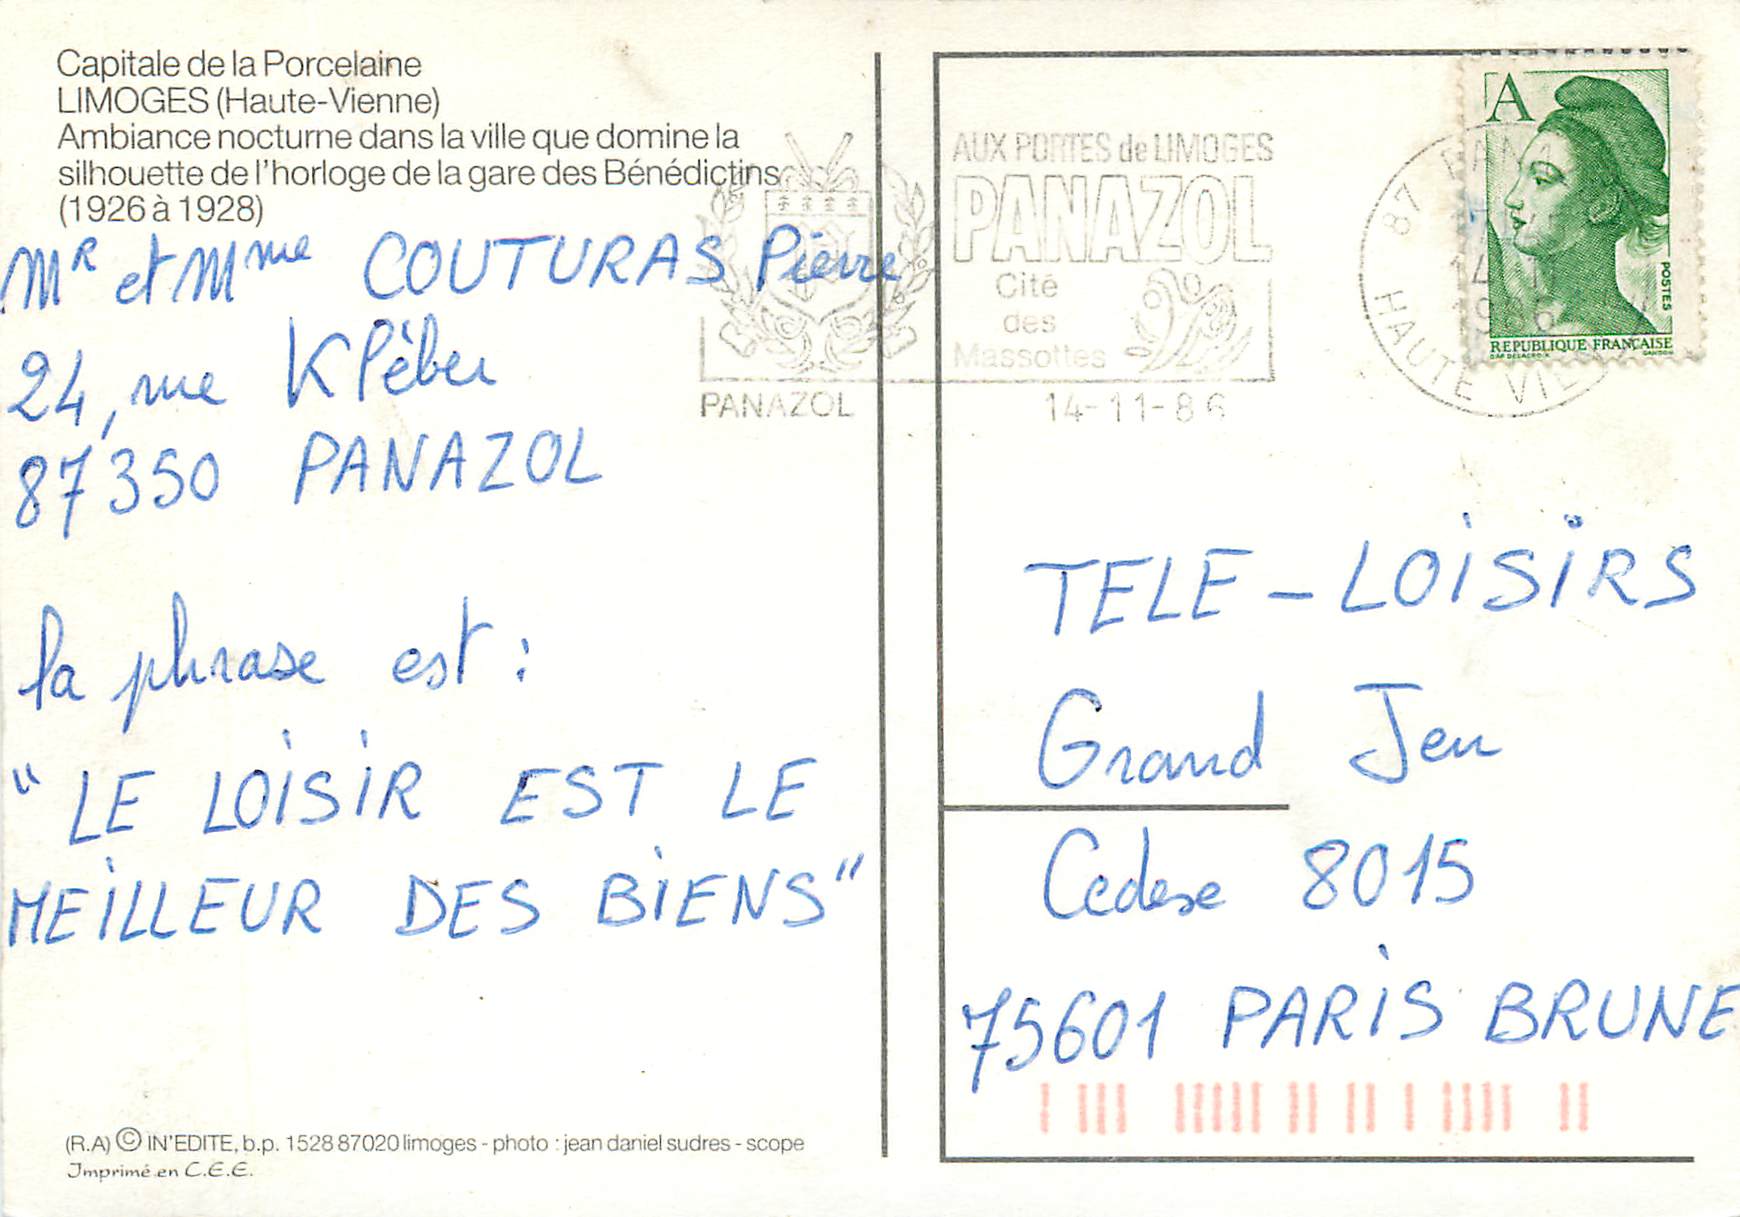 Capitale de la Porcelaine
LIMOGES (Haute-Vienne)
Ambiance nocturne dans la ville que domine la
silhouette de l'horloge de la gare des Bénédictins
(1926 à 1928)
Mr et Mme COUTURAS Pierre
24, rue Kléber
87350 PANAZOL
la phrase est :
"LE LOISIR EST LE
MEILLEUR DES BIENS"
(R.A) © IN'EDITE, b.p. 1528 87020 limoges - photo : jean daniel sudres - scope
Imprimé en C.E.E.
AUX PORTES de LIMOGES
PANAZOL
Cité
des
Massottes
PANAZOL
14-11-86
87 PANA
14
1986
HAUTE VIE
A
POSTES
REPUBLIQUE FRANÇAISE
DAP DELACROIX GANDON
TELE-LOISIRS
Grand Jeu
Cedese 8015
75601 PARIS BRUNE